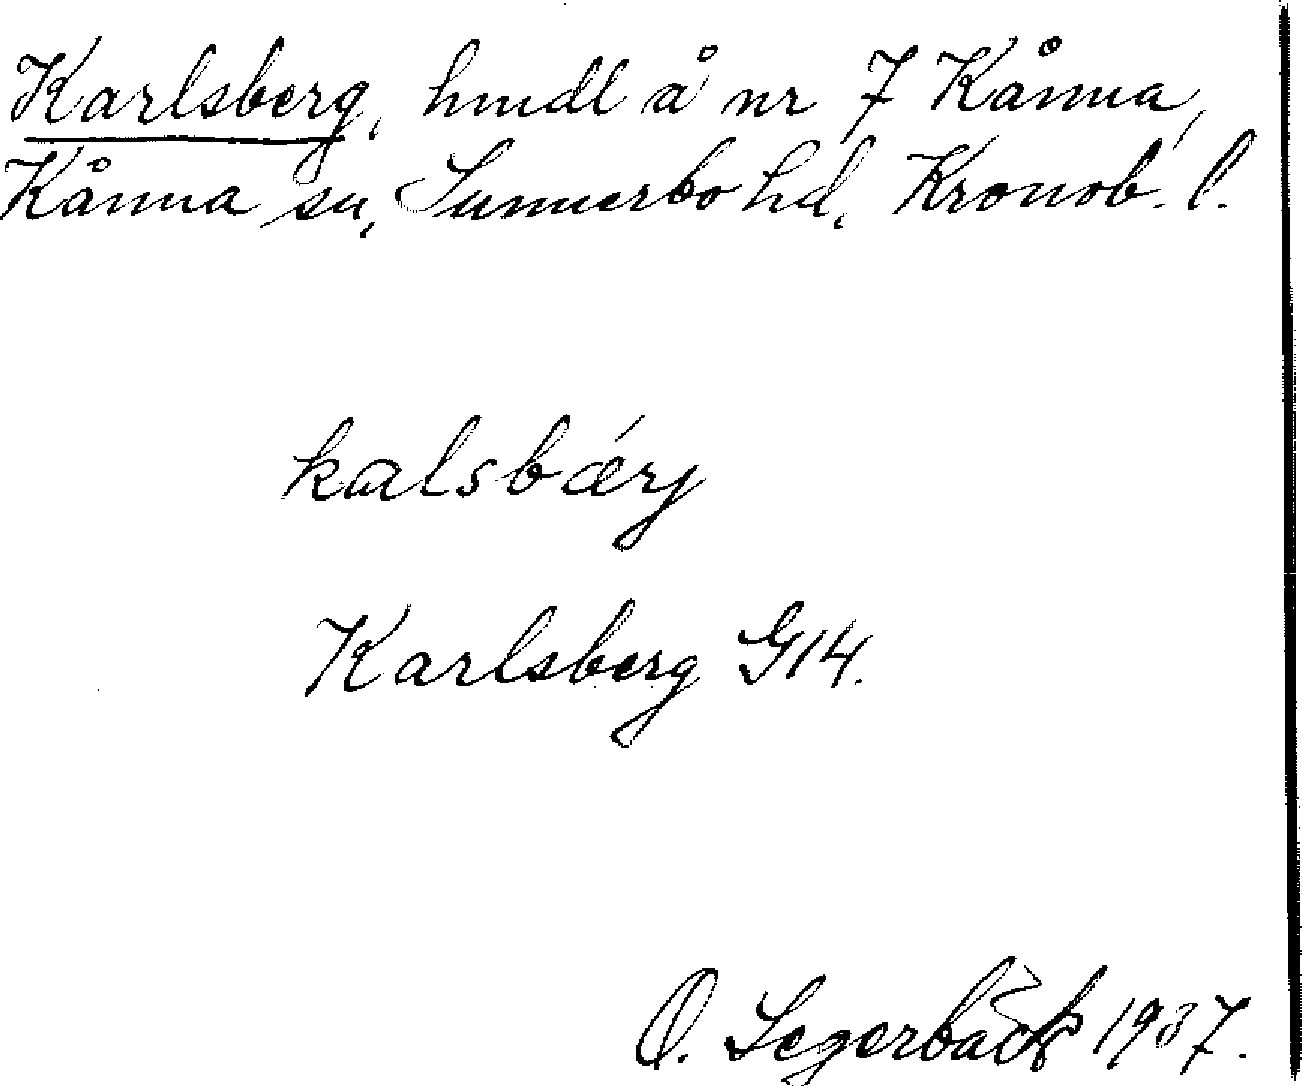 Karlsberg, hmdl å nr 7 Kånna,
Kånna sn, Sunnerbo hd, Kronob. l.
kalsbǽrj
Karlsberg G14.
O. Segerbäck 1937.